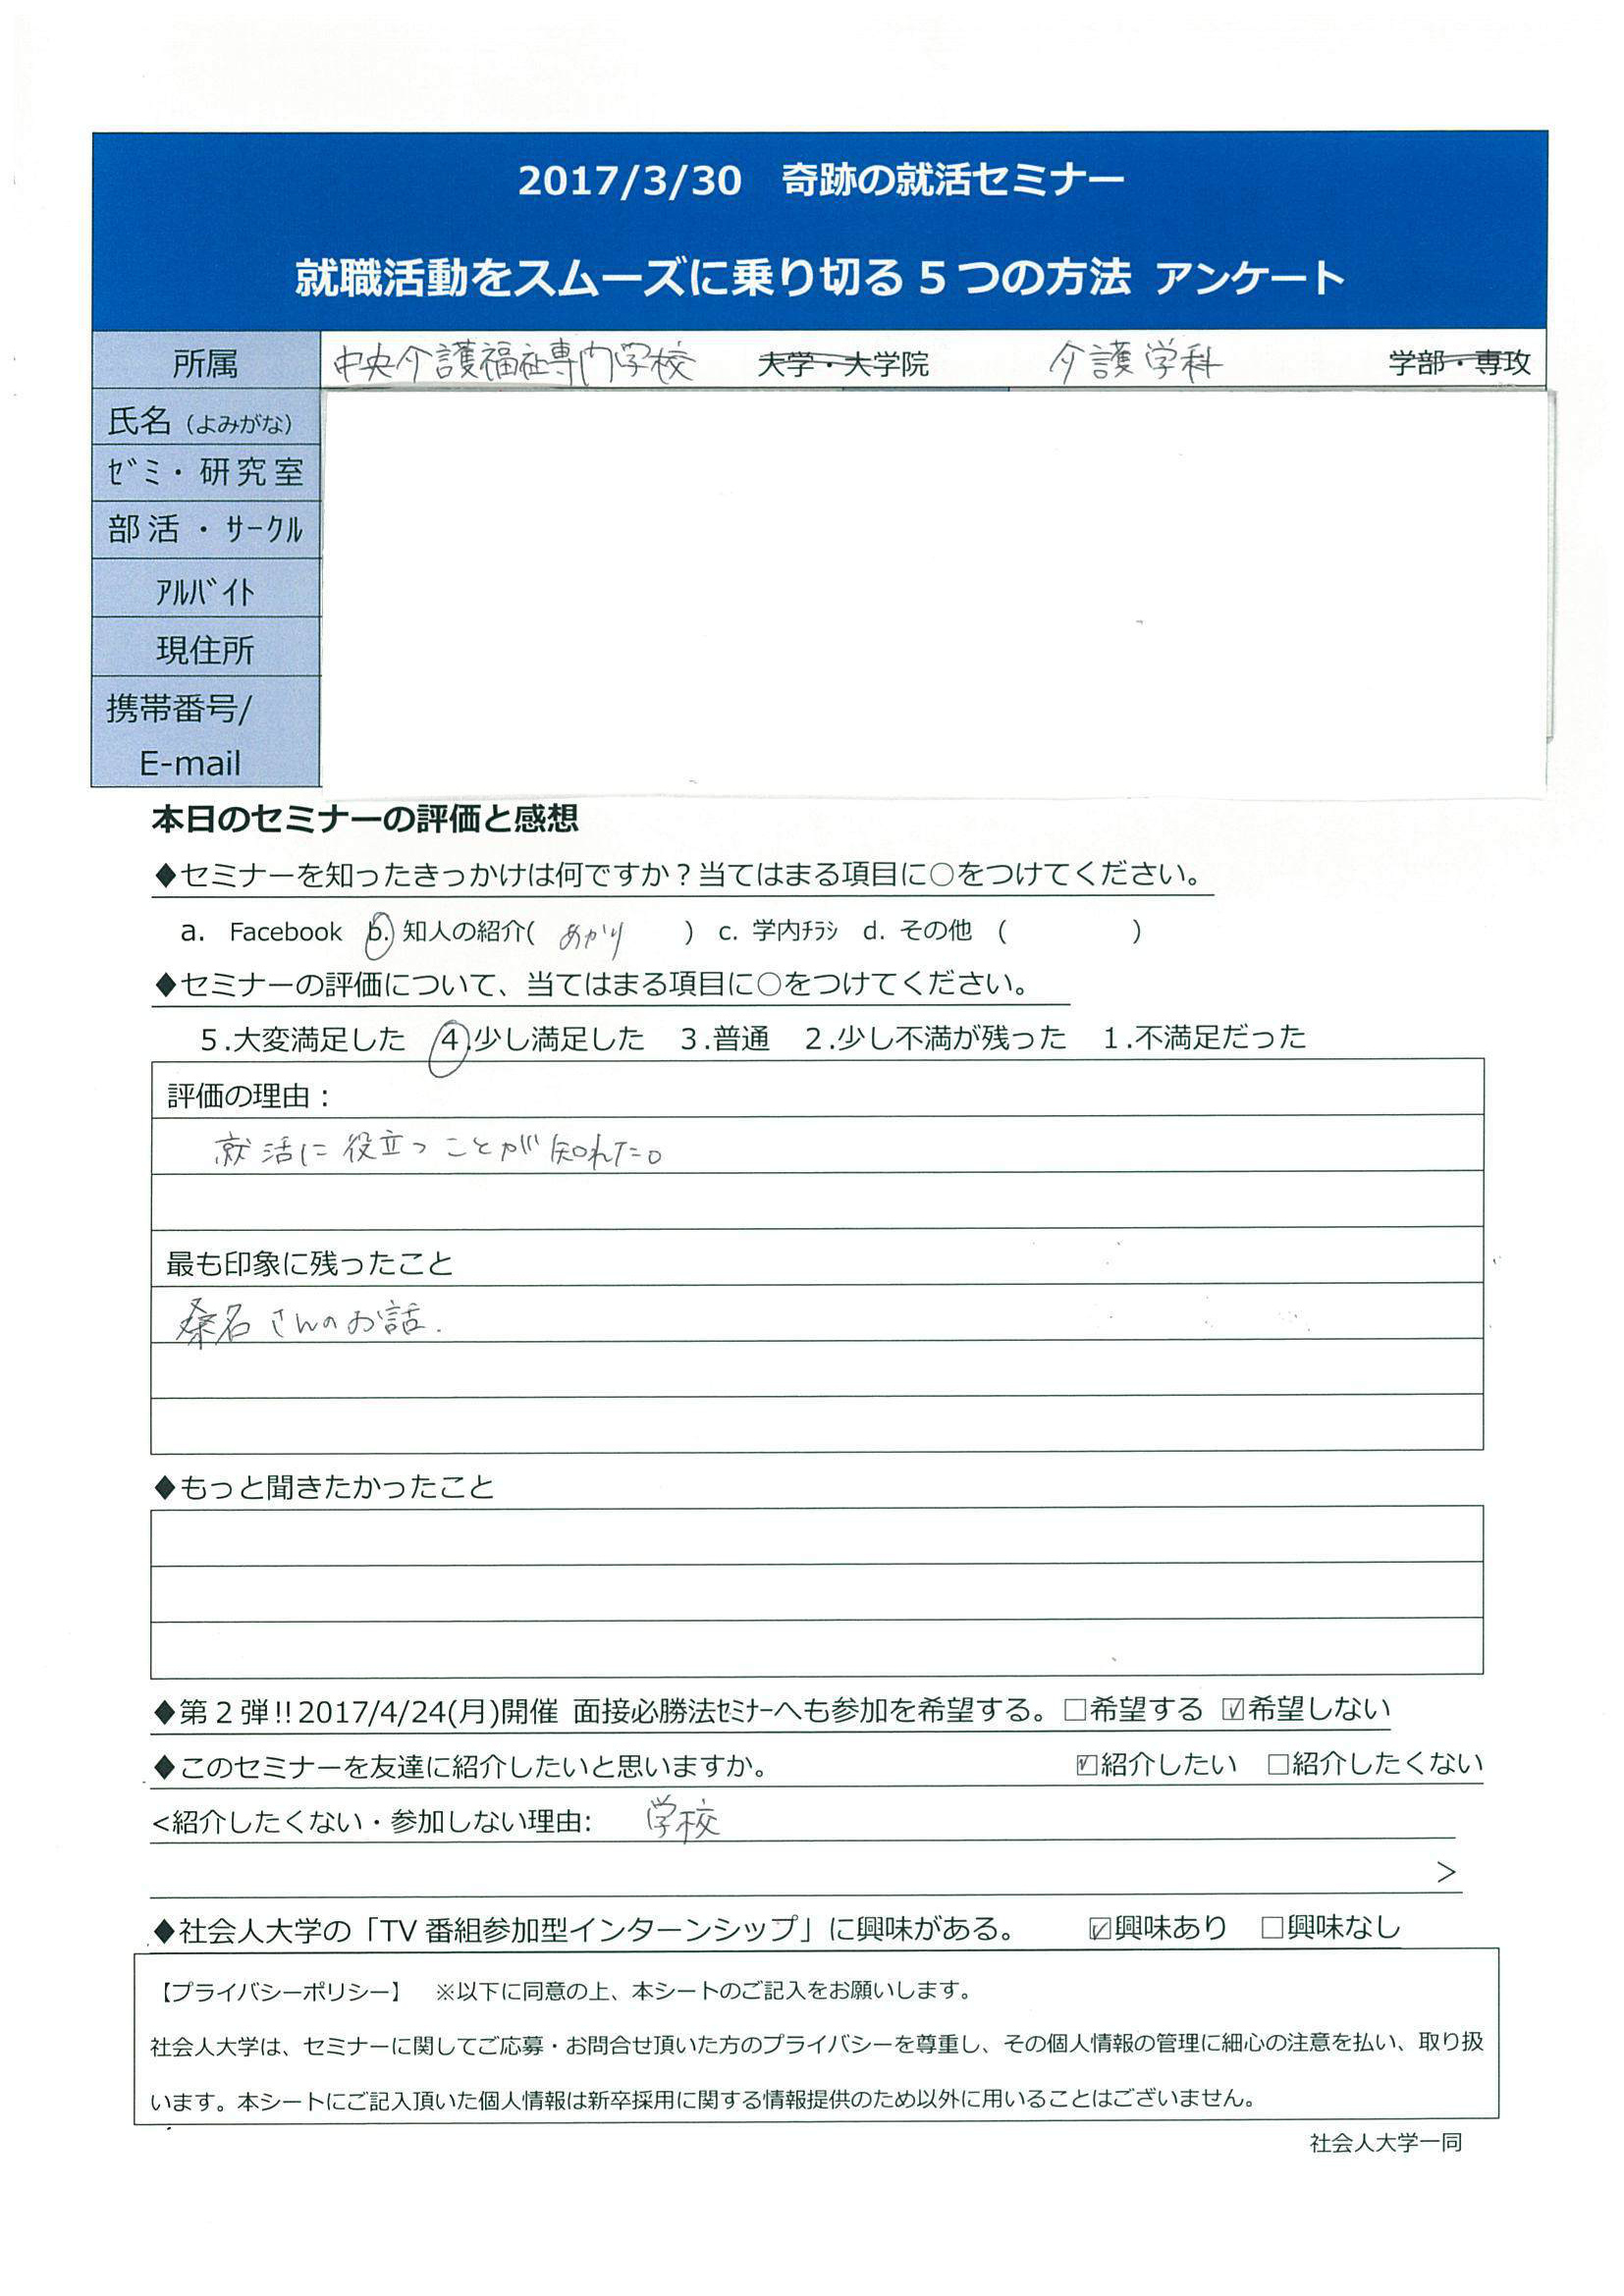 2017/3/30　奇跡の就活セミナー
就職活動をスムーズに乗り切る５つの方法 アンケート
所属 中央介護福祉専門学校 大学・大学院 介護学科 学部・専攻
氏名（よみがな）
ｾﾞﾐ・研究室
部活・ｻｰｸﾙ
ｱﾙﾊﾞｲﾄ
現住所
携帯番号/
E-mail
本日のセミナーの評価と感想
◆セミナーを知ったきっかけは何ですか？当てはまる項目に○をつけてください。
a. Facebook b. 知人の紹介( あかり ) c. 学内ﾁﾗｼ d. その他 ( )
◆セミナーの評価について、当てはまる項目に○をつけてください。
５.大変満足した ４.少し満足した ３.普通 ２.少し不満が残った １.不満足だった
評価の理由：
就活に役立つことが知れた。
最も印象に残ったこと
桑名さんのお話.
◆もっと聞きたかったこと
◆第２弾!!2017/4/24(月)開催 面接必勝法ｾﾐﾅｰへも参加を希望する。□希望する ☑希望しない
◆このセミナーを友達に紹介したいと思いますか。 ☑紹介したい □紹介したくない
<紹介したくない・参加しない理由: 学校
>
◆社会人大学の「TV 番組参加型インターンシップ」に興味がある。 ☑興味あり □興味なし
【プライバシーポリシー】 ※以下に同意の上、本シートのご記入をお願いします。
社会人大学は、セミナーに関してご応募・お問合せ頂いた方のプライバシーを尊重し、その個人情報の管理に細心の注意を払い、取り扱
います。本シートにご記入頂いた個人情報は新卒採用に関する情報提供のため以外に用いることはございません。
社会人大学一同